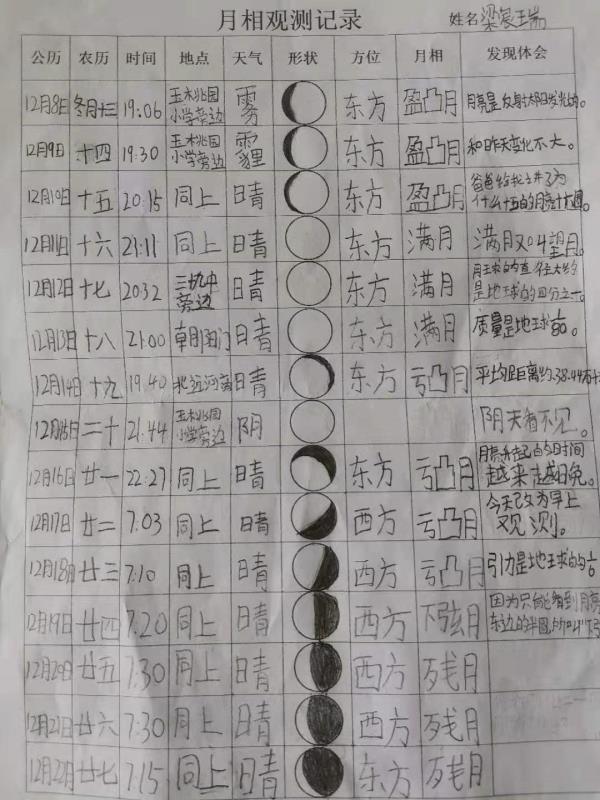 月相观测记录
姓名
公历 农历 时间 地点 天气 形状 方位 月相 发现体会
12月8日 冬月十三 19:06 玉木兆园小学旁边 雾 东方 盈凸月 月亮是反射太阳发光的。
12月9日 十四 19:30 玉木兆园小学旁边 霾 东方 盈凸月 和昨天变化不大。
12月10日 十五 20:15 同上 晴 东方 盈凸月 爸爸给我讲了为什么十五的月亮十六圆。
12月11日 十六 21:11 同上 晴 东方 满月 满月又叫望月。
12月12日 十七 20:32 旁边 晴 东方 满月 月球的直径大约是地球的四分之一。
12月13日 十八 21:00 朝阳门 晴 东方 满月 质量是地球
12月14日 十九 19:40 晴 东方 亏凸月 平均距离约38.44万
12月15日 二十 21:44 玉木兆园小学旁边 阴 阴天看不见。
12月16日 廿一 22:27 同上 晴 东方 亏凸月 月亮升起的时间越来越晚。
12月17日 廿二 7:03 同上 晴 西方 亏凸月 今天改为早上观测。
12月18日 廿三 7:10 同上 晴 西方 亏凸月 引力是地球的
12月19日 廿四 7:20 同上 晴 西方 下弦月 因为只能看到月亮东边的半圆,所以叫"下弦
12月20日 廿五 7:30 同上 晴 西方 残月
12月21日 廿六 7:30 同上 晴 西方 残月
12月22日 廿七 7:15 同上 晴 东方 残月